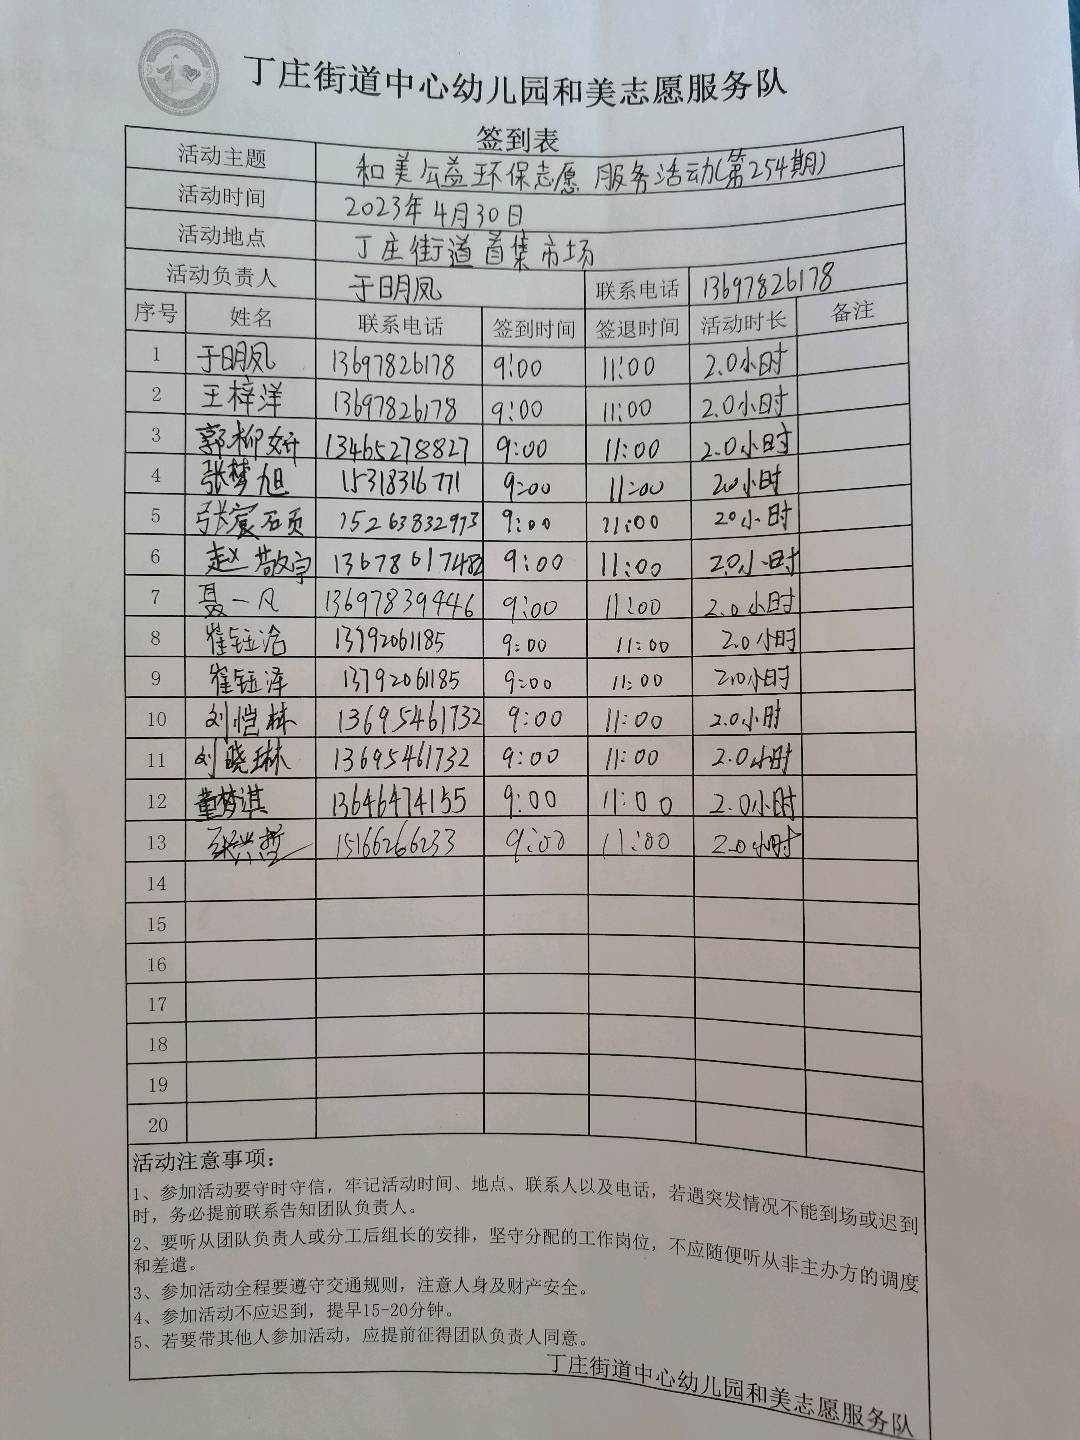 丁庄街道中心幼儿园和美志愿服务队
签到表
活动主题 和美公益环保志愿服务活动(第254期)
活动时间 2023年4月30日
活动地点 丁庄街道首集市场
活动负责人 于明凤 联系电话 13697826178
序号 姓名 联系电话 签到时间 签退时间 活动时长 备注
1 于明凤 13697826178 9:00 11:00 2.0小时
2 王梓洋 13697826178 9:00 11:00 2.0小时
3 郭柳妍 13465278827 9:00 11:00 2.0小时
4 张梦旭 15318316771 9:00 11:00 2.0小时
5 张宸硕 15263832973 9:00 11:00 2.0小时
6 赵敬宇 13678617482 9:00 11:00 2.0小时
7 聂一凡 13697839446 9:00 11:00 2.0小时
8 崔钰浩 13792061185 9:00 11:00 2.0小时
9 崔钰泽 13792061185 9:00 11:00 2.0小时
10 刘恺林 13695461732 9:00 11:00 2.0小时
11 刘晓琳 13695461732 9:00 11:00 2.0小时
12 董梦淇 13646474155 9:00 11:00 2.0小时
13 张兴哲 15166266233 9:00 11:00 2.0小时
14
15
16
17
18
19
20
活动注意事项:
1、参加活动要守时守信，牢记活动时间、地点、联系人以及电话，若遇突发情况不能到场或迟到
时，务必提前联系告知团队负责人。
2、要听从团队负责人或分工后组长的安排，坚守分配的工作岗位，不应随便听从非主办方的调度
和差遣。
3、参加活动全程要遵守交通规则，注意人身及财产安全。
4、参加活动不应迟到，提早15-20分钟。
5、若要带其他人参加活动，应提前征得团队负责人同意。
丁庄街道中心幼儿园和美志愿服务队